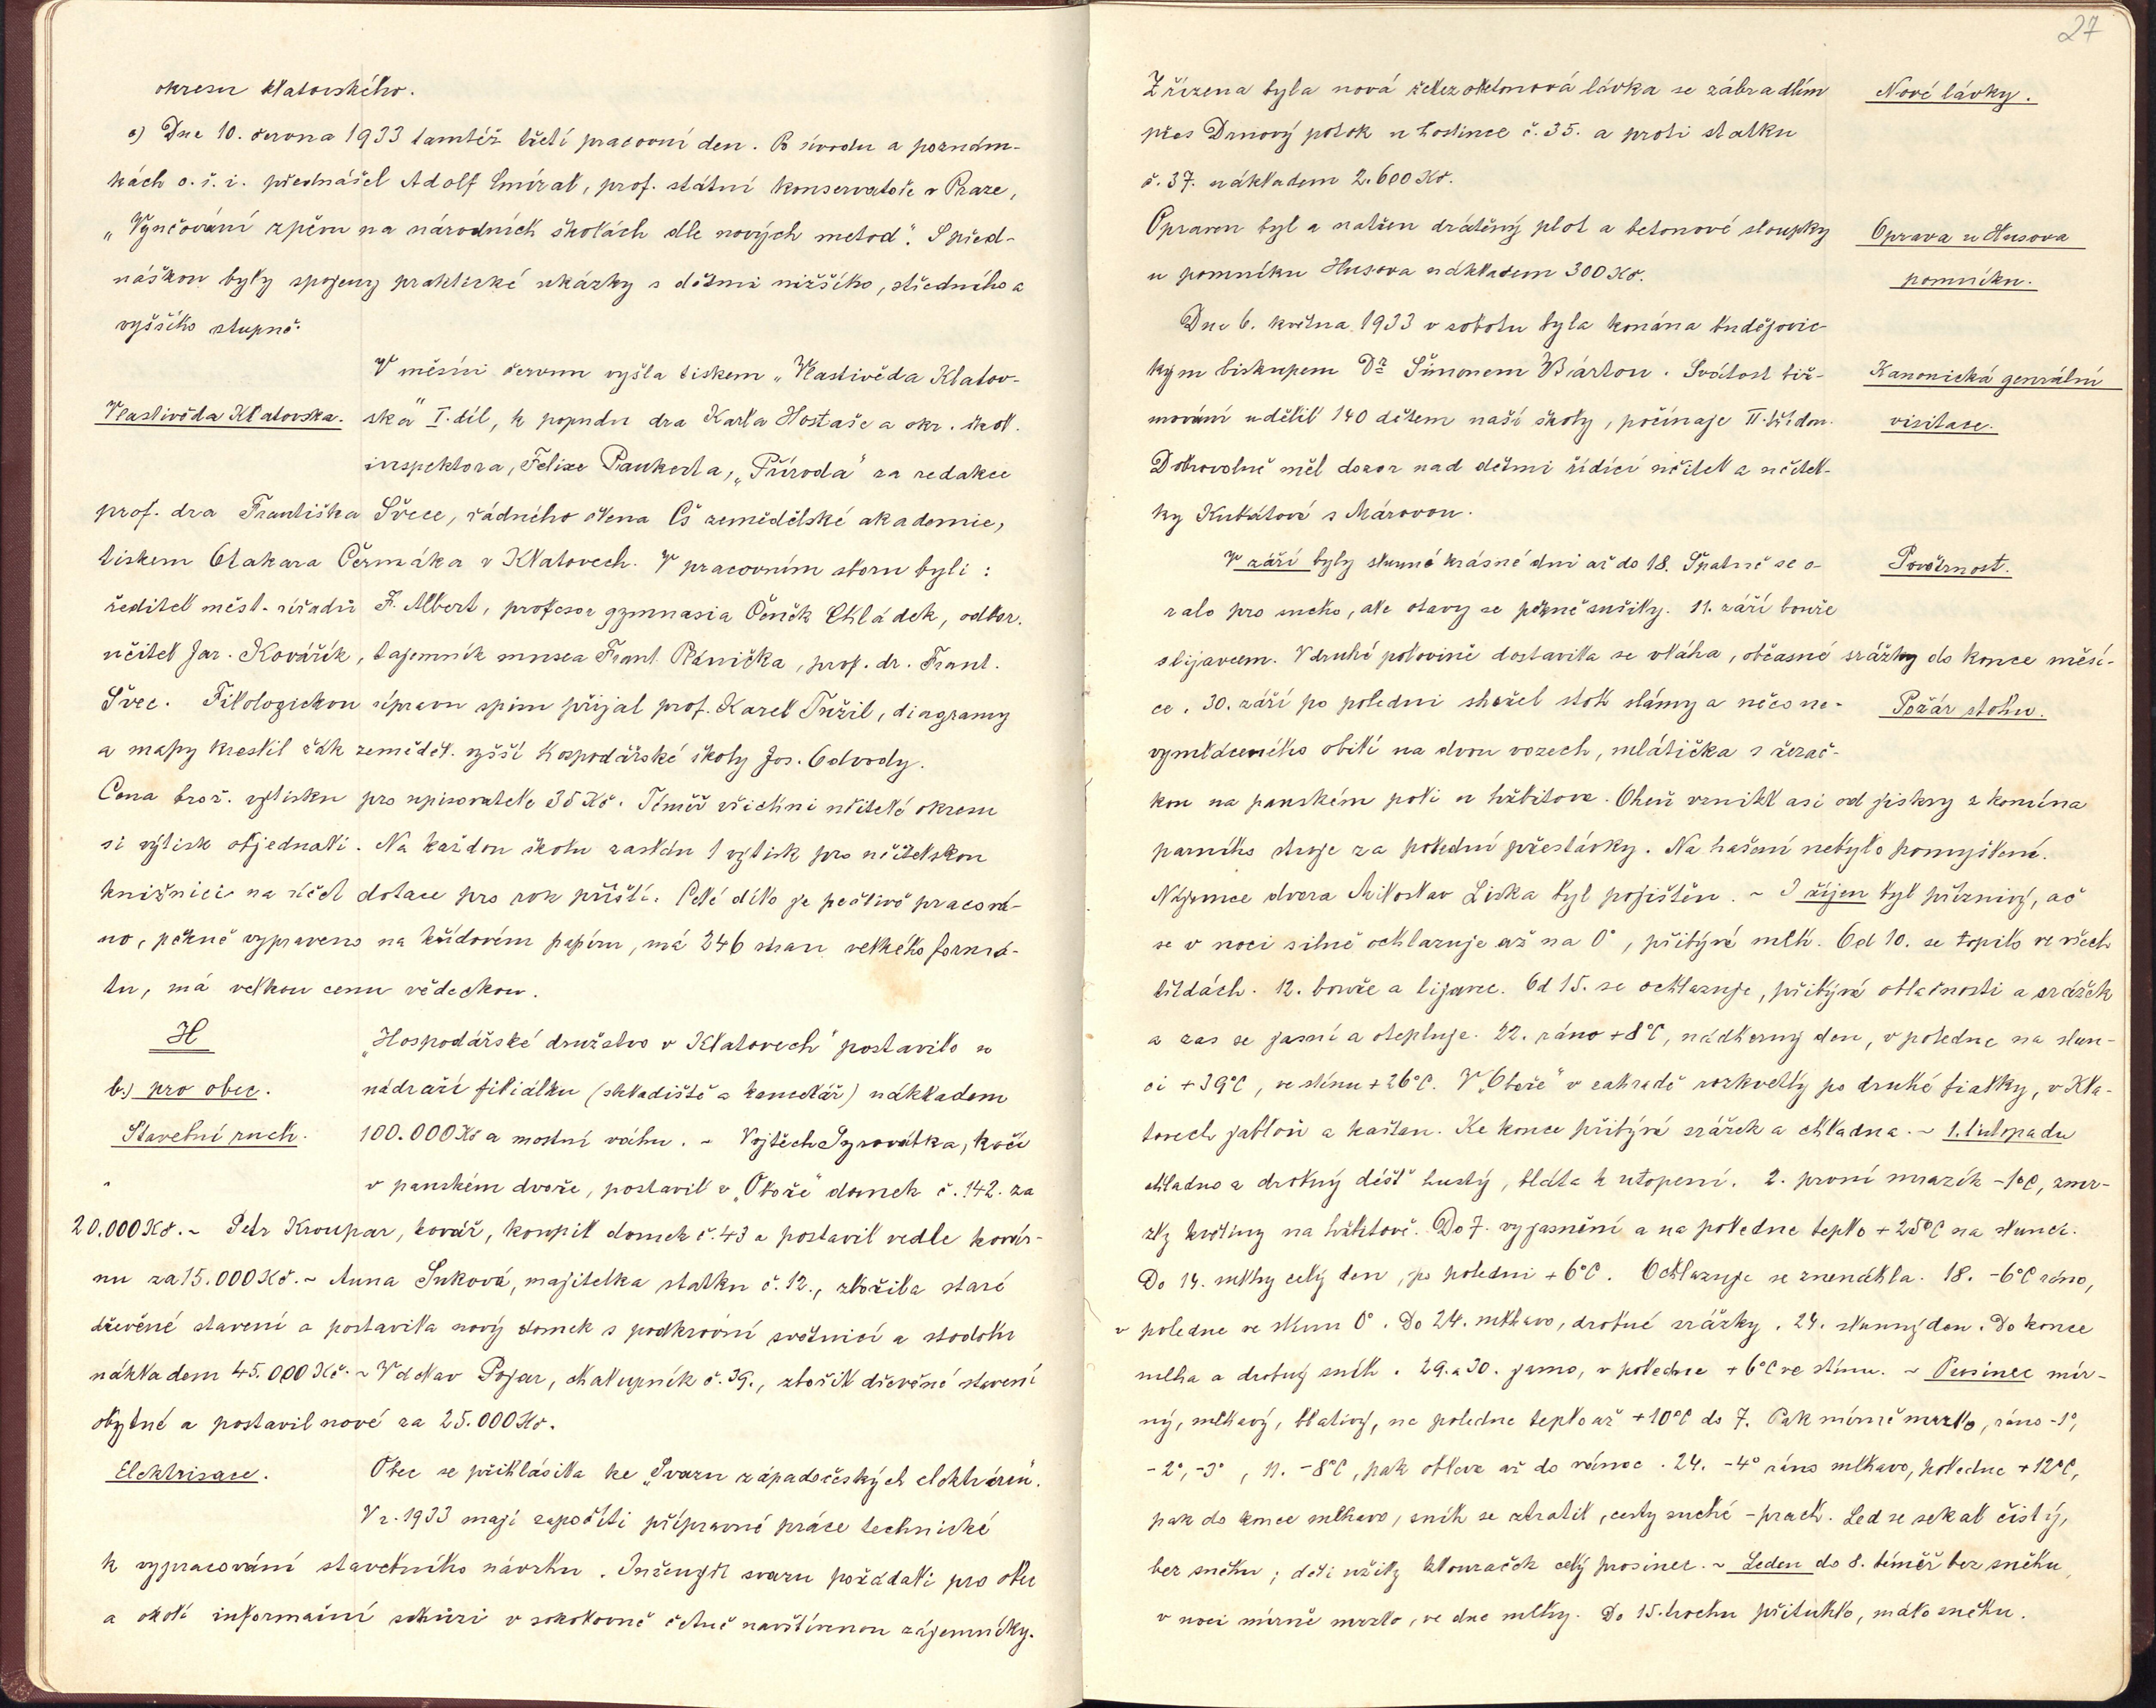 okresu klatovského.
c) Dne 10. června 1933 tamtéž třetí pracovní den. Po úvodu a poznám-
kách o. š. i. přednášel Adolf Cmíral, prof. státní konservatoře v Praze,
„Vyučování zpěvu na národních školách dle nových metod". S před-
náškou byly spojeny praktické ukázky s dětmi nižšího, středního a
vyššího stupně.
V měsíci červnu vyšla tiskem „Vlastivěda Klatov-
Vlastivěda Klatovska. ska" I. díl, k popudu dra Karla Hostaše a okr. škol.
inspektora, Felixe Paukerta, „Příroda" za redakce
prof. dra Františka Švece, řádného člena Čs zemědělské akademie,
tiskem Otakara Čermáka v Klatovech. V pracovním sboru byli :
ředitel měst. úřadů F. Albert, profesor gymnasia Čeněk Chládek, odbor.
učitel Jar. Kovářík, tajemník musea Frant. Plánička, prof. dr. Frant.
Švec. Filologickou úpravu spisu přijal prof. Karel Tužil, diagramy
a mapy kreslil žák zeměděl. vyšší hospodářské školy Jos. Odvody.
Cena brož. výtisku pro upisovatele 35 Kč. Téměř všichni učitelé okresu
si výtisk objednali. Na každou školu zaslán 1 výtisk pro učitelskou
knižnici na účet dotace pro rok příští. Celé dílo je pečlivě pracová-
no, pěkně vypraveno na křídovém papíru, má 246 stran velkého formá-
tu, má velkou cenu vědeckou.
H „Hospodářské družstvo v Klatovech" postavilo u
b.) pro obec. nádraží filiálku (skladiště a kancelář) nákladem
Stavební ruch. 100.000 Kč a mostní váhu. ~ Vojtěch Syrovátka, kočí
" v panském dvoře, postavil v „Oboře" domek č. 142. za
20.000 Kč. ~ Petr Kroupar, kovář, koupil domek č. 43 a postavil vedle kovár-
nu za 15.000 Kč. ~ Anna Suková, majitelka statku č. 12., zbořila staré
dřevěné stavení a postavila nový domek s podkrovní světnicí a stodolu
nákladem 45.000 Kč. ~ Václav Pojar, chalupník č. 39., zbořil dřevěné stavení
obytné a postavil nové za 25.000 Kč.
Elektrisace. Obec se přihlásila ke „Svazu západočeských elektráren".
V r. 1933 mají započíti přípravné práce technické
k vypracování stavebního návrhu. Inženýři svazu požádali pro obec
a okolí informační schůzi v sokolovně četně navštívenou zájemníky.
27
Zřízena byla nová železobetonová lávka se zábradlím Nové lávky.
přes Drnový potok u hostince č. 35. a proti statku
č. 37. nákladem 2.600 Kč.
Opraven byl a natřen drátěný plot a betonové sloupky Oprava u Husova
u pomníku Husova nákladem 300 Kč. pomníku.
Dne 6. května 1933 v sobotu byla konána budějovic-
kým biskupem Dr Šimonem Bártou. Svátost biř- Kanonická generální
mování udělil 140 dětem naší školy, počínaje II. třídou. visitace.
Dobrovolně měl dozor nad dětmi řídící učitel a učitel-
ky Kubátová s Márovou.
V září byly slunné krásné dni až do 18. Špatně se o- Povětrnost.
ralo pro sucho, ale otavy se pěkně sušily. 11. září bouře
s lijavcem. V druhé polovině dostavila se vláha, občasné srážky do konce měsí-
ce. 30. září po poledni shořel stoh slámy a něco ne- Požár stohu.
vymláceného obilí na dvou vozech, mlátička s řezač-
kou na panském poli u hřbitova. Oheň vznikl asi od jiskry z komína
parního stroje za polední přestávky. Na hašení nebylo pomyšlení.
Nájemce dvora Miloslav Liska byl pojištěn. ~ I říjen byl příznivý, ač
se v noci silně ochlazuje až na 0°, přibývá mlh. Od 10. se topilo ve všech
třídách. 12. bouře a lijavec. Od 15. se ochlazuje, přibývá oblačnosti a srážek
a zas se jasní a otepluje. 22. ráno +8°C, nádherný den, v poledne na slun-
ci +39°C, ve stínu +26°C. V „Oboře" v zahradě rozkvetly po druhé fialky, v Kla-
tovech jabloň a kaštan. Ke konce přibývá srážek a chladna. ~ 1. listopadu
chladno a drobný déšť hustý, bláta k utopení. 2. první mrazík -1°C, zmr-
zly květiny na hřbitově. Do 7. vyjasnění a na poledne teplo +25°C na slunci.
Do 14. mlhy celý den, po poledni +6°C. Ochlazuje se znenáhla. 18. -6°C ráno,
v poledne ve stínu 0°. Do 24. mlhavo, drobné srážky. 24. slunný den. Do konce
mlha a drobný sníh. 29. a 30. jasno, v poledne +6°C ve stínu. ~ Prosinec mír-
ný, mlhavý, blativý, na poledne teplo až +10°C do 7. Pak mírně mrzlo, ráno -1°,
-2°, -3°, 11. -8°C, pak obleva až do vánoc. 24. -4° ráno mlhavo, poledne +12°C,
pak do konce mlhavo, sníh se ztratil, cesty suché - prach. Led se sekal čistý,
bez sněhu; děti užily klouzaček celý prosinec. ~ Leden do 8. téměř bez sněhu,
v noci mírně mrzlo, ve dne mlhy. Do 15. trochu přituhlo, málo sněhu.